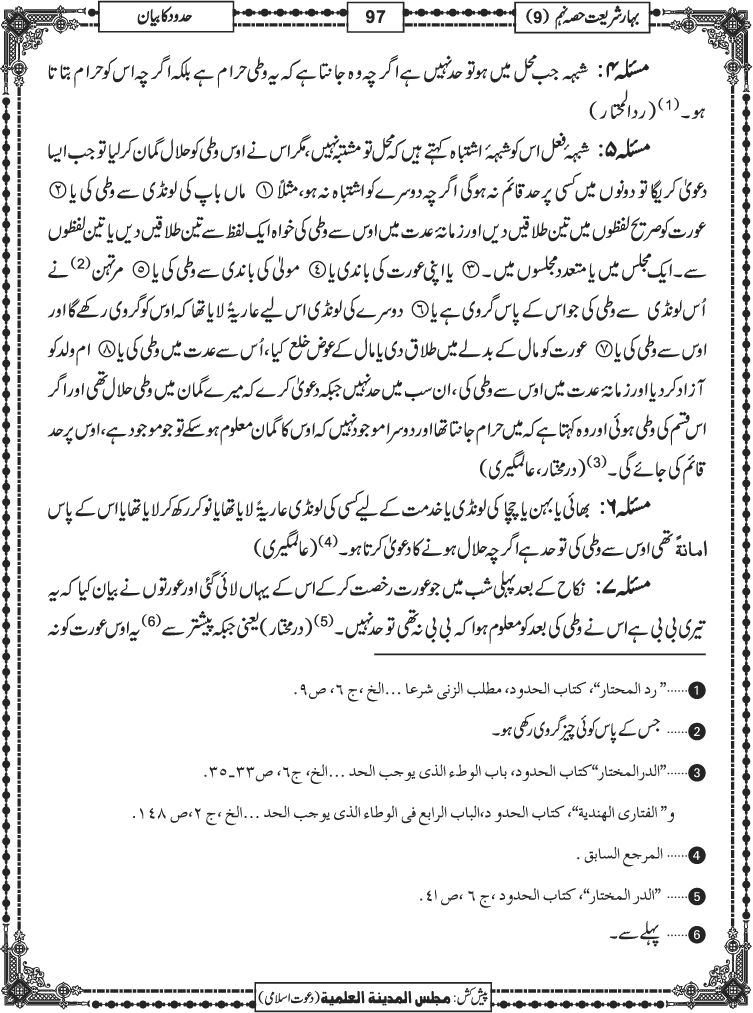 بہارِ شریعت حصہ نہم (9)
97
حدود کا بیان
مسئلہ ۴: شبہہ جب محل میں ہو تو حد نہیں ہے اگرچہ وہ جانتا ہے کہ یہ وطی حرام ہے بلکہ اگرچہ اس کو حرام بتاتا
ہو۔(1) (ردالمحتار)
مسئلہ ۵: شبہۂ فعل اس کو شبہۂ اشتباہ کہتے ہیں کہ محل تو مشتبہ نہیں، مگر اس نے اوس وطی کو حلال گمان کر لیا تو جب ایسا
دعویٰ کریگا تو دونوں میں کسی پر حد قائم نہ ہوگی اگرچہ دوسرے کو اشتباہ نہ ہو، مثلاً ① ماں باپ کی لونڈی سے وطی کی یا ②
عورت کو صریح لفظوں میں تین طلاقیں دیں اور زمانۂ عدت میں اوس سے وطی کی خواہ ایک لفظ سے تین طلاقیں دیں یا تین لفظوں
سے۔ ایک مجلس میں یا متعدد مجلسوں میں۔ ③ یا اپنی عورت کی باندی یا ④ مولیٰ کی باندی سے وطی کی یا ⑤ مرتہن(2) نے
اُس لونڈی سے وطی کی جو اس کے پاس گروی ہے یا ⑥ دوسرے کی لونڈی اس لیے عاریۃً لایا تھا کہ اوس کو گروی رکھے گا اور
اوس سے وطی کی یا ⑦ عورت کو مال کے بدلے میں طلاق دی یا مال کے عوض خلع کیا، اُس سے عدت میں وطی کی یا ⑧ ام ولد کو
آزاد کردیا اور زمانۂ عدت میں اوس سے وطی کی، ان سب میں حد نہیں جبکہ دعویٰ کرے کہ میرے گمان میں وطی حلال تھی اور اگر
اس قسم کی وطی ہوئی اور وہ کہتا ہے کہ میں حرام جانتا تھا اور دوسرا موجود نہیں کہ اوس کا گمان معلوم ہو سکے تو جو موجود ہے، اوس پر حد
قائم کی جائے گی۔(3) (درمختار، عالمگیری)
مسئلہ ۶: بھائی یا بہن یا چچا کی لونڈی یا خدمت کے لیے کسی کی لونڈی عاریۃً لایا تھا یا نوکر رکھ کر لایا تھا یا اس کے پاس
امانۃً تھی اوس سے وطی کی تو حد ہے اگرچہ حلال ہونے کا دعویٰ کرتا ہو۔(4) (عالمگیری)
مسئلہ ۷: نکاح کے بعد پہلی شب میں جو عورت رخصت کر کے اس کے یہاں لائی گئی اور عورتوں نے بیان کیا کہ یہ
تیری بی بی ہے اس نے وطی کی بعد کو معلوم ہوا کہ بی بی نہ تھی تو حد نہیں۔(5) (درمختار) یعنی جبکہ پیشتر سے(6) یہ اوس عورت کو نہ
1 ......”رد المحتار“، کتاب الحدود، مطلب الزنی شرعا ...الخ ،ج ۶، ص۹.
2 ...... جس کے پاس کوئی چیز گروی رکھی ہو۔
3 ......”الدرالمختار“کتاب الحدود، باب الوطء الذی یوجب الحد ...الخ، ج۶، ص۳۳۔۳۵.
و” الفتاری الھندیة“، کتاب الحدو د،الباب الرابع فی الوطاء الذی یوجب الحد ...الخ ،ج ۲،ص ۱۴۸.
4 ...... المرجع السابق .
5 ...... ”الدر المختار“، کتاب الحدود ،ج ۶ ،ص ۴۱.
6 ...... پہلے سے۔
پیش کش: مجلس المدینة العلمیة (دعوت اسلامی)